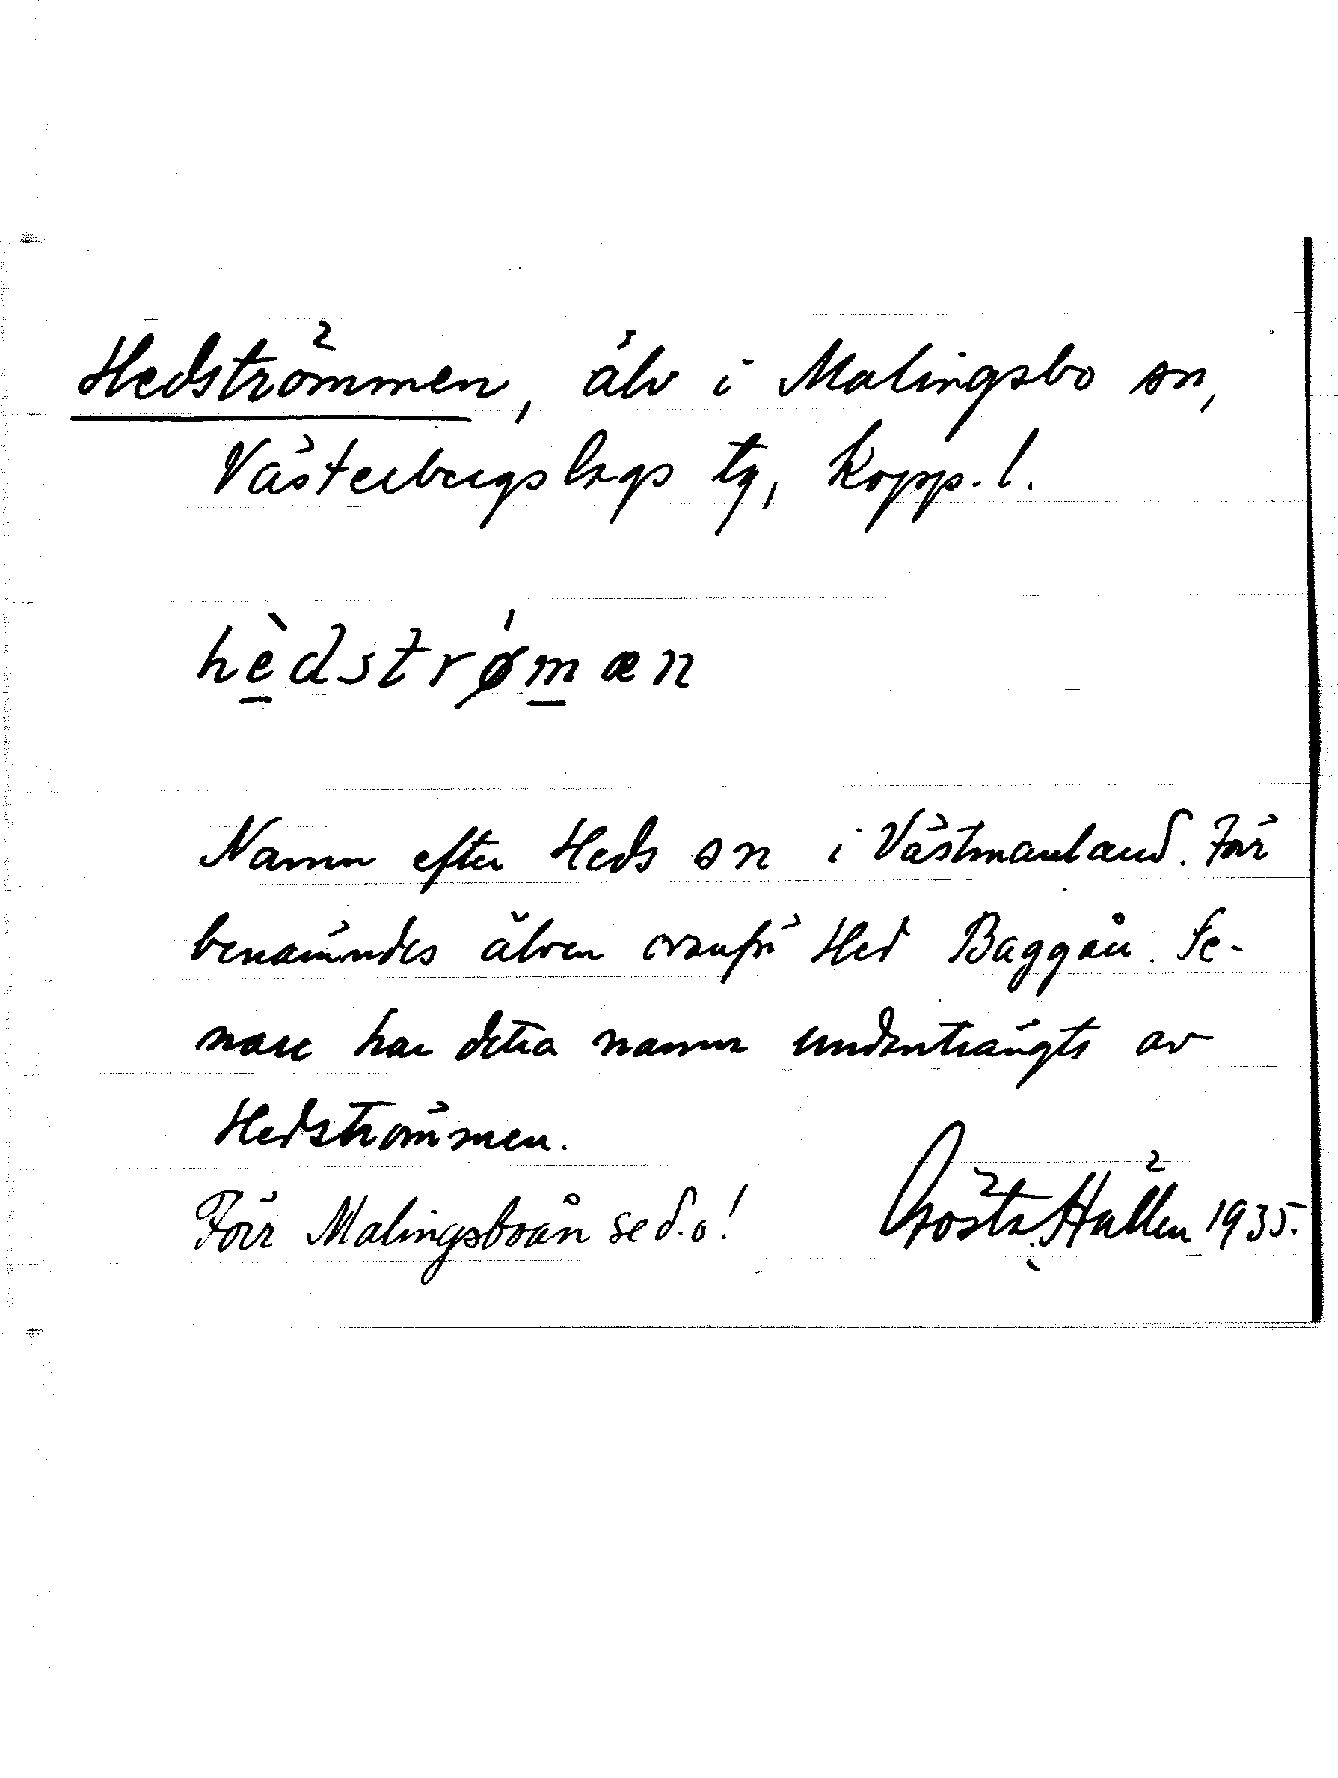 Hedströmmen, älv i Malingsbo sn,
Västerbergslags tg, Kopp. l.
hèdstrǿmæn
Namn efter Heds sn i Västmanland. Förr
benämndes älven ovanför Hed Baggån. Se-
nare har detta namn undanträngts av
Hedströmmen.
Förr Malingsboån se d.o!
Gösta Hallén 1935.